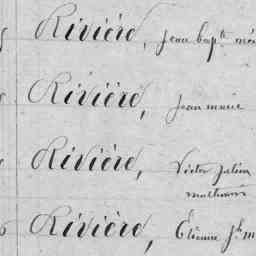 Rivière, Jean bapt
Rivière, Jean marie
Rivière, Victor Julien
mathurin
Rivière, Étienne Jh m